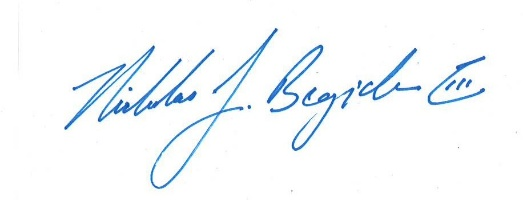 Nicholas J. Begich III